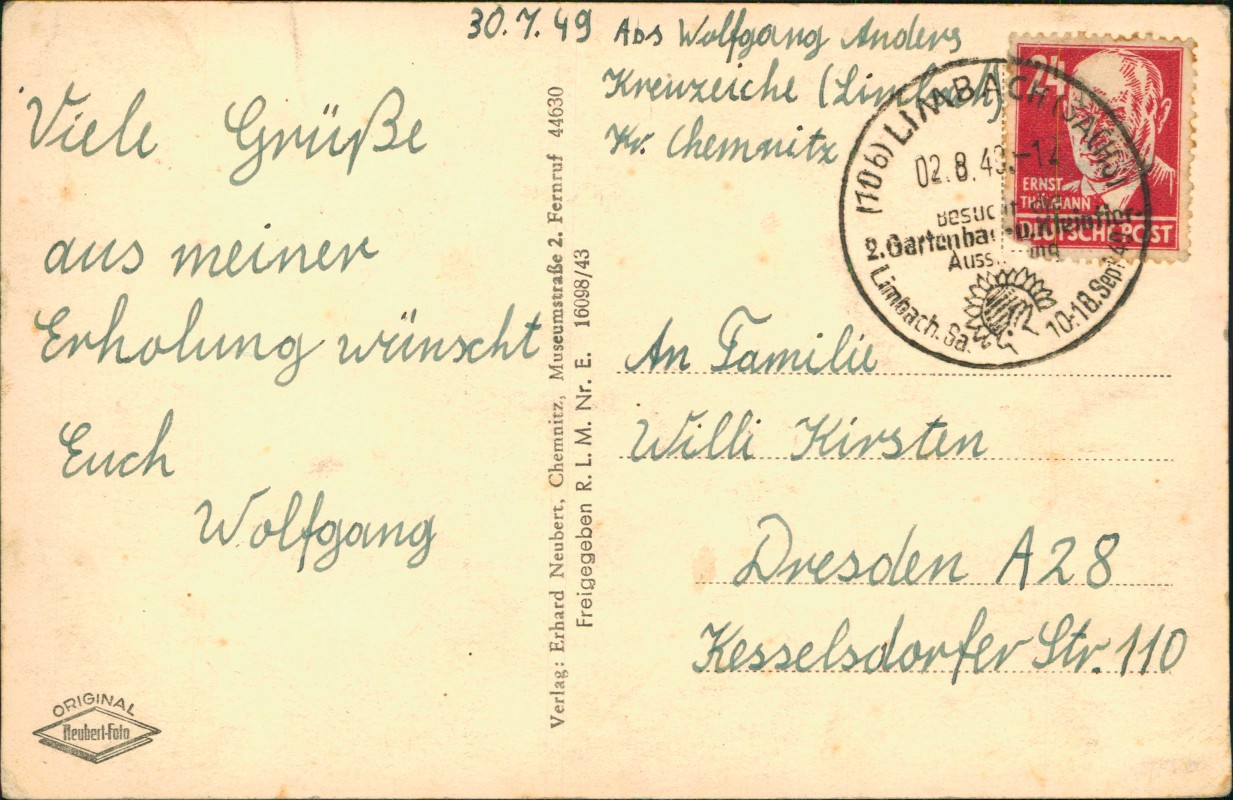 30.7.49 Abs Wolfgang Anders
Kreuzeiche (Limbach)
Kr. Chemnitz
Viele Grüße
aus meiner
Erholung wünscht
Euch
Wolfgang
ORIGINAL
Neubert-Foto
Verlag: Erhard Neubert, Chemnitz, Museumstraße 2. Fernruf 44630
Freigegeben R. L. M. Nr. E. 16098/43
24
ERNST
THÄLMANN
DEUTSCHE POST
(10b) LIMBACH (SACHS)
02.8.49.-12
Besucht
2. Gartenbau- u. Kleintier-
Limbach. Sa. 10-18. Sept.
An Familie
Willi Kirsten
Dresden A28
Kesselsdorfer Str. 110